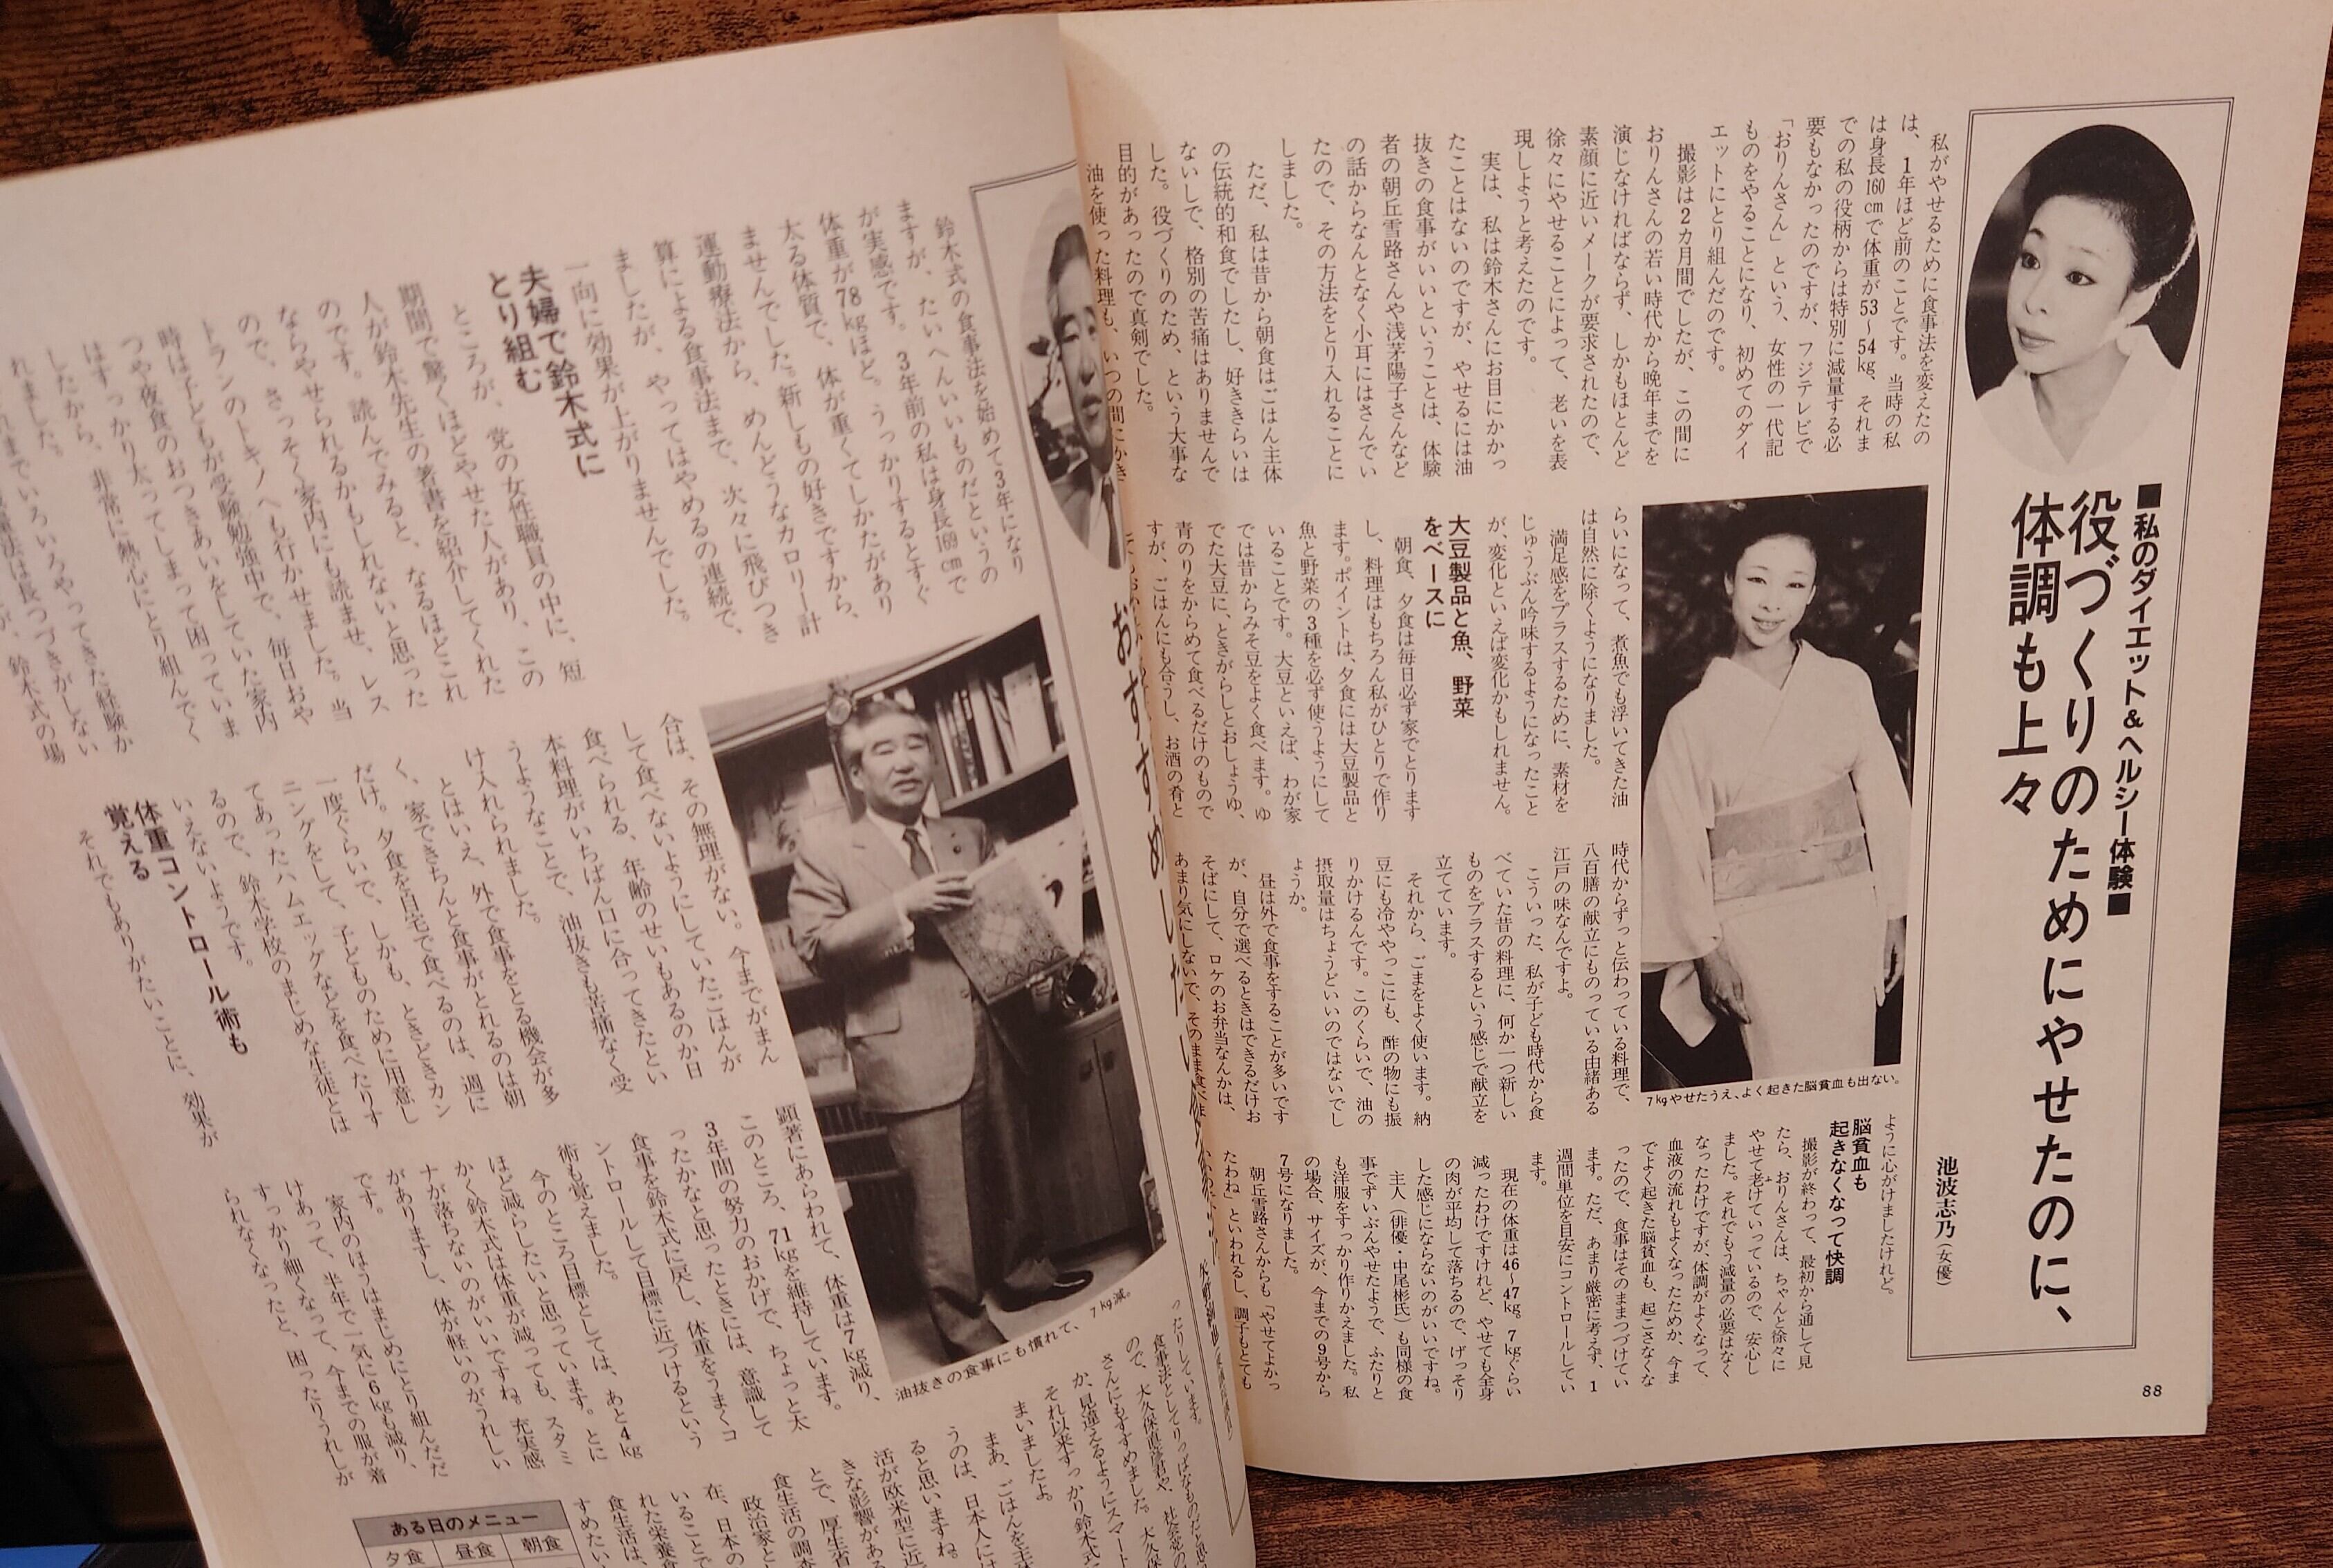 ■私のダイエット&ヘルシー体験■
役づくりのためにやせたのに、
体調も上々
池波志乃(女優)
私がやせるために食事法を変えたの
は、1年ほど前のことです。当時の私
は身長160cmで体重が53〜54kg、それま
での私の役柄からは特別に減量する必
要もなかったのですが、フジテレビで
「おりんさん」という、女性の一代記
ものをやることになり、初めてのダイ
エットにとり組んだのです。
撮影は2カ月間でしたが、この間に
おりんさんの若い時代から晩年までを
演じなければならず、しかもほとんど
素顔に近いメークが要求されたので、
徐々にやせることによって、老いを表
現しようと考えたのです。
実は、私は鈴木さんにお目にかかっ
たことはないのですが、やせるには油
抜きの食事がいいということは、体験
者の朝丘雪路さんや浅茅陽子さんなど
の話からなんとなく小耳にはさんでい
たので、その方法をとり入れることに
しました。
ただ、私は昔から朝食はごはん主体
の伝統的和食でしたし、好ききらいは
ないしで、格別の苦痛はありませんで
した。役づくりのため、という大事な
目的があったので真剣でした。
油を使った料理も、いつの間にかき
らいになって、煮魚でも浮いてきた油
は自然に除くようになりました。
満足感をプラスするために、素材を
じゅうぶん吟味するようになったこと
が、変化といえば変化かもしれません。
大豆製品と魚、野菜
をベースに
朝食、夕食は毎日必ず家でとります
し、料理はもちろん私がひとりで作り
ます。ポイントは、夕食には大豆製品と
魚と野菜の3種を必ず使うようにして
いることです。大豆といえば、わが家
では昔からみそ豆をよく食べます。ゆ
でた大豆に、ときがらしとおしょうゆ、
青のりをからめて食べるだけのもので
すが、ごはんにも合うし、お酒の肴と
時代からずっと伝わっている料理で、
八百膳の献立にものっている由緒ある
江戸の味なんですよ。
こういった、私が子ども時代から食
べていた昔の料理に、何か一つ新しい
ものをプラスするという感じで献立を
立てています。
それから、ごまをよく使います。納
豆にも冷ややっこにも、酢の物にも振
りかけるんです。このくらいで、油の
摂取量はちょうどいいのではないでし
ょうか。
昼は外で食事をすることが多いです
が、自分で選べるときはできるだけお
そばにして、ロケのお弁当なんかは、
あまり気にしないで、そのまま食べま
ように心がけましたけれど。
脳貧血も
起きなくなって快調
撮影が終わって、最初から通して見
たら、おりんさんは、ちゃんと徐々に
やせて老けていっているので、安心し
ました。それでもう減量の必要はなく
なったわけですが、体調がよくなって、
血液の流れもよくなったためか、今ま
でよく起きた脳貧血も、起こさなくな
ったので、食事はそのままつづけてい
ます。ただ、あまり厳密に考えず、1
週間単位を目安にコントロールしてい
ます。
現在の体重は46〜47kg。7kgぐらい
減ったわけですけれど、やせても全身
の肉が平均して落ちるので、げっそり
した感じにならないのがいいですね。
主人(俳優・中尾彬氏)も同様の食
事でずいぶんやせたようで、ふたりと
も洋服をすっかり作りかえました。私
の場合、サイズが、今までの9号から
7号になりました。
朝丘雪路さんからも「やせてよかっ
たわね」といわれるし、調子もとても
7kgやせたうえ、よく起きた脳貧血も出ない。
88
おすすめした
鈴木式の食事法を始めて3年になり
ますが、たいへんいいものだというの
が実感です。3年前の私は身長169cmで
体重が78kgほど。うっかりするとすぐ
太る体質で、体が重くてしかたがあり
ませんでした。新しもの好きですから、
運動療法から、めんどうなカロリー計
算による食事法まで、次々に飛びつき
ましたが、やってはやめるの連続で、
一向に効果が上がりませんでした。
夫婦で鈴木式に
とり組む
ところが、党の女性職員の中に、短
期間で驚くほどやせた人があり、この
人が鈴木先生の著書を紹介してくれた
のです。読んでみると、なるほどこれ
ならやせられるかもしれないと思った
ので、さっそく家内にも読ませ、レス
トランのトキノへも行かせました。当
時は子どもが受験勉強中で、毎日おや
つや夜食のおつきあいをしていた家内
はすっかり太ってしまって困っていま
したから、非常に熱心にとり組んでく
れました。
これまでいろいろやってきた経験か
療法は長つづきがしない
が、鈴木式の場
合は、その無理がない。今までがまん
して食べないようにしていたごはんが
食べられる、年齢のせいもあるのか日
本料理がいちばん口に合ってきたとい
うようなことで、油抜きも苦痛なく受
け入れられました。
とはいえ、外で食事をとる機会が多
く、家できちんと食事がとれるのは朝
だけ。夕食を自宅で食べるのは、週に
一度ぐらいで、しかも、ときどきカン
ニングをして、子どものために用意し
てあったハムエッグなどを食べたりす
るので、鈴木学校のまじめな生徒とは
いえないようです。
体重コントロール術も
覚える
それでもありがたいことに、効果が
顕著にあらわれて、体重は7kg減り、
このところ、71kgを維持しています。
3年間の努力のおかげで、ちょっと太
ったかなと思ったときには、意識して
食事を鈴木式に戻し、体重をうまくコ
ントロールして目標に近づけるという
術も覚えました。
今のところ目標としては、あと4kg
ほど減らしたいと思っています。とに
かく鈴木式は体重が減っても、スタミ
ナが落ちないのがいいですね。充実感
がありますし、体が軽いのがうれしい
です。
家内のほうはまじめにとり組んだだ
けあって、半年で一気に6kgも減り、
すっかり細くなって、今までの服が着
られなくなったと、困ったりうれしが
ったりしています。
食事法としてりっぱなものだと思
ので、大久保直彦君や、社会党の
さんにもすすめました。大久保
か、見違えるようにスマート
それ以来すっかり鈴木式
まいましたよ。
まあ、ごはんを主
うのは、日本人には
ると思いますね。
活が欧米型に近
きな影響がある
とで、厚生省
食生活の調査
政治家と
在、日本の
いることで
れた栄養食
食生活は、
すめたい
油抜きの食事にも慣れて、7kg減。
ある日のメニュー
朝食
昼食
夕食